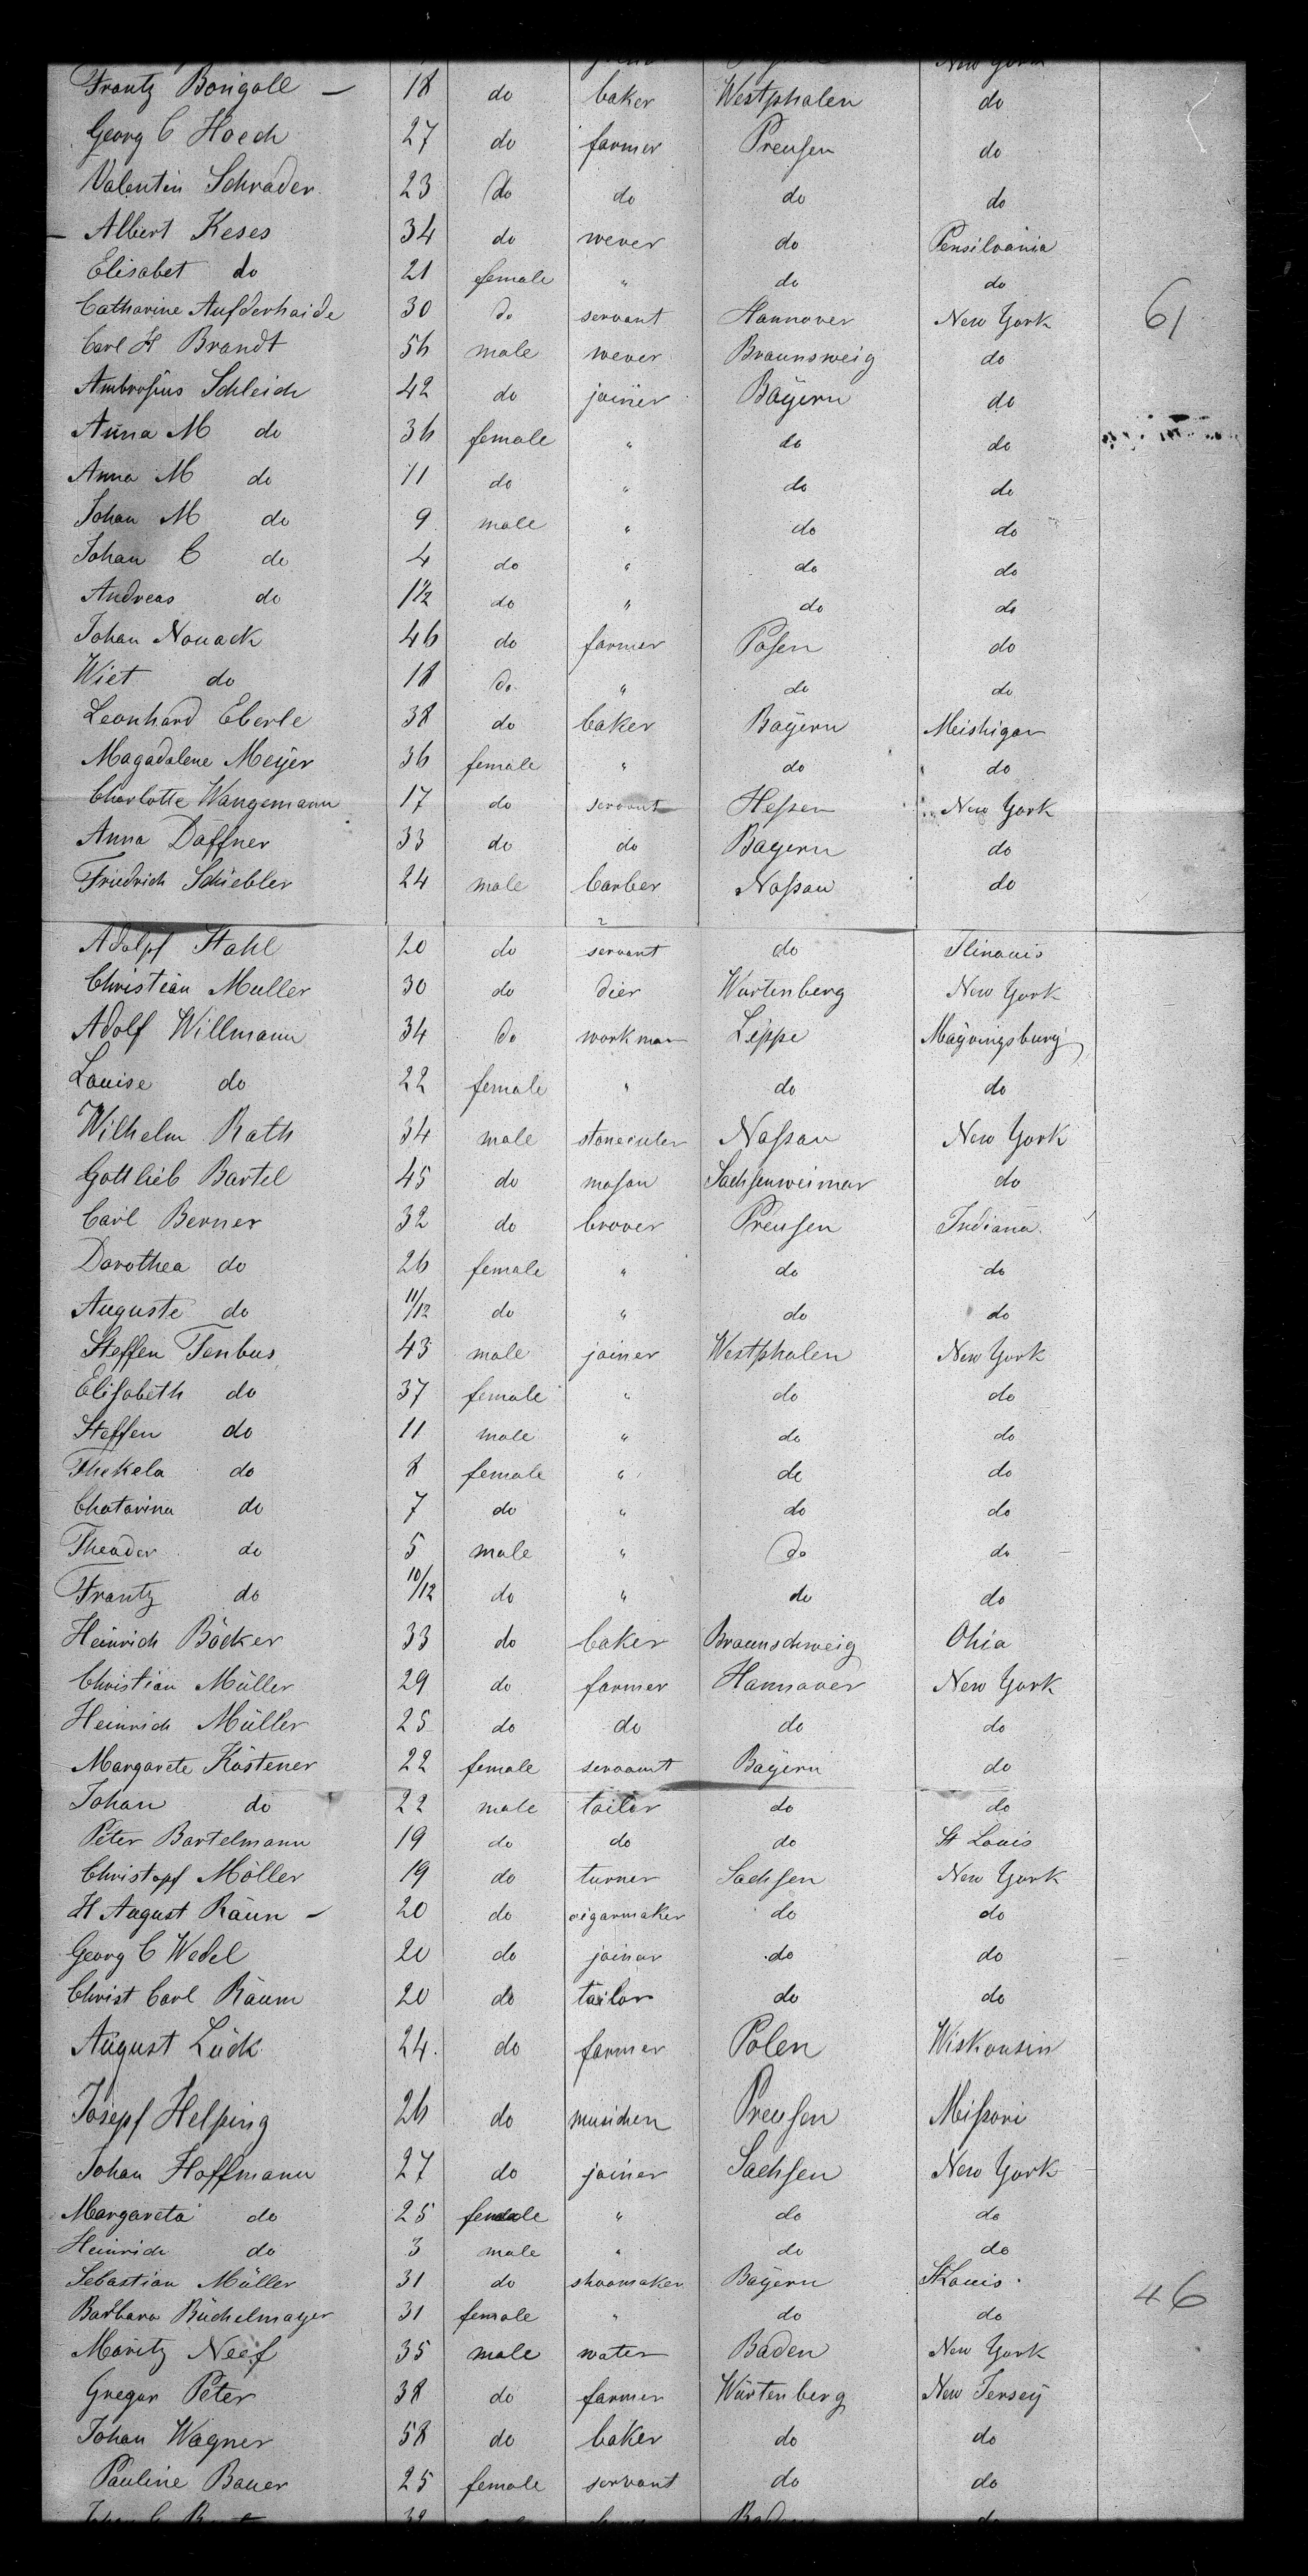 New York
Frantz Bongoll — 18 do baker Westphalen do
Georg C Hoech 27 do farmer Preusen do
Valentin Schrader 23 do do do do
Albert Keses 34 do wever do Pensilvania
Elisabet do 21 female " do do
Catharine Aufderhaide 30 do servant Hannover New York 61
Carl H Brandt 56 male wever Braunsweig do
Ambrosius Schleich 42 do joiner Bayern do
Anna M do 36 female " do do
Anna M do 11 do " do do
Johan M do 9 male " do do
Johan C do 4 do " do do
Andreas do 1½ do " do do
Johan Nouack 46 do farmer Posen do
Wiet do 18 do " do do
Leonhard Eberle 38 do baker Bayern Meishigan
Magadalene Meyer 36 female " do do
Charlotte Wangemann 17 do servant Hessen New York
Anna Daffner 33 do do Bayern do
Friedrich Schiebler 24 male barber Nassau do
Adolpf Stahl 20 do servant do Ilinouis
Christian Muller 30 do dier Wurtenberg New York
Adolf Willmann 34 do workman Lippe
Louise do 22 female " do do
Wilhelm Rath 34 male stonecuter Nassau New York
Gottlieb Bartel 45 do mason Sachsenweimar do
Carl Berner 32 do brover Preusen Indiana
Dorothea do 26 female " do do
Auguste do 11/12 do " do do
Steffen Tenbus 43 male joiner Westphalen New York
Elisabeth do 37 female " do do
Steffen do 11 male " do do
Thekela do 8 female " do do
Chatarina do 7 do " do do
Theader do 5 male " do do
Frantz do 10/12 do " do do
Heinrich Böcker 33 do baker Braunschweig Ohia
Christian Müller 29 do farmer Hannover New York
Heinrich Müller 25 do do do do
Margarete Köstener 22 female servant Bayern do
Johan do 22 male tailor do do
Peter Bartelmann 19 do do do St Louis
Christopf Möller 19 do turner Sachsen New York
H August Räun — 20 do cigarmaker do do
Georg C Wedel 20 do joiner do do
Christ Carl Räum 20 do tailor do do
August Lück 24 do farmer Polen Wiskonsin
Josepf Helping 26 do musichen Preusen Missori
Johan Hoffmann 27 do joiner Sachsen New York
Margareta do 25 female " do do
Heinrich do 3 male " do do
Sebastian Müller 31 do shoomaker Bayern St Louis 46
Barbara Büchelmayer 31 female " do do
Moritz Neef 35 male water Baden New York
Gregor Peter 38 do farmer Würtenberg New Jersey
Johan Wagner 58 do baker do do
Pauline Bauer 25 female servant do do